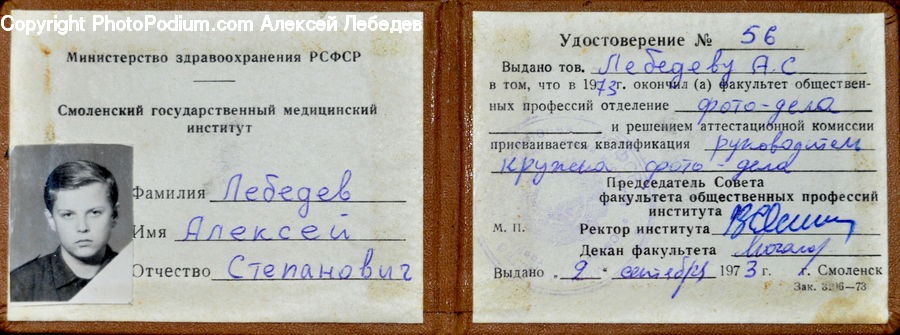 Copyright PhotoPodium.com Алексей Лебедев
Министерство здравоохранения РСФСР
Смоленский государственный медицинский
институт
Фамилия Лебедев
Имя Алексей
Отчество Степанович
Удостоверение № 56
Выдано тов. Лебедеву А.С
в том, что в 1973 г. окончил (а) факультет обществен-
ных профессий отделение фото-дела
и решением аттестационной комиссии
присваивается квалификация руководитель
кружка фото-дела
Председатель Совета
факультета общественных профессий
института
М. П. Ректор института
Декан факультета
Выдано „ 2 " сентября 1973 г. г. Смоленск
Зак. 3296—73